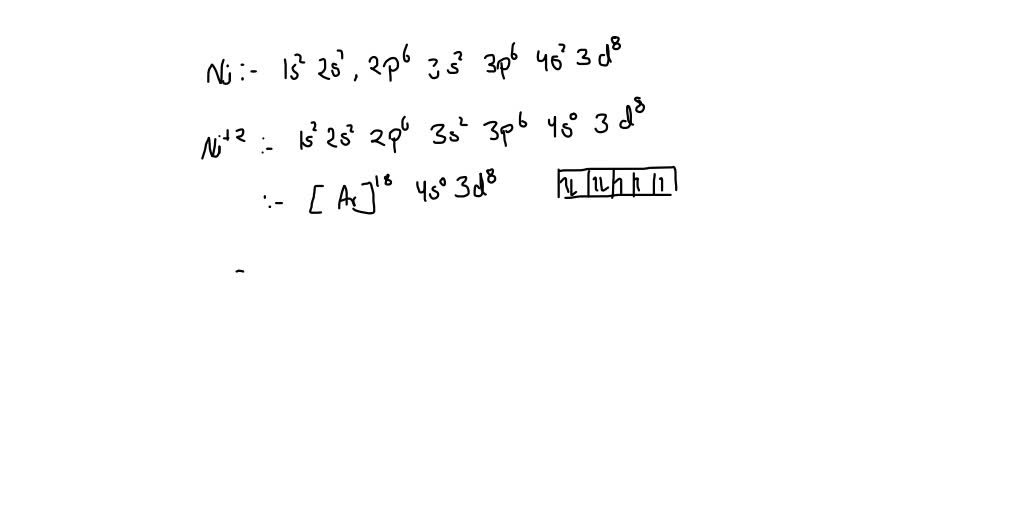 Ni :- 1s² 2s², 2p⁶ 3s² 3p⁶ 4s² 3d⁸
Ni⁺² :- 1s² 2s² 2p⁶ 3s² 3p⁶ 4s⁰ 3d⁸
:- [Ar]¹⁸ 4s⁰ 3d⁸ 1L 1L 1 1 1
-